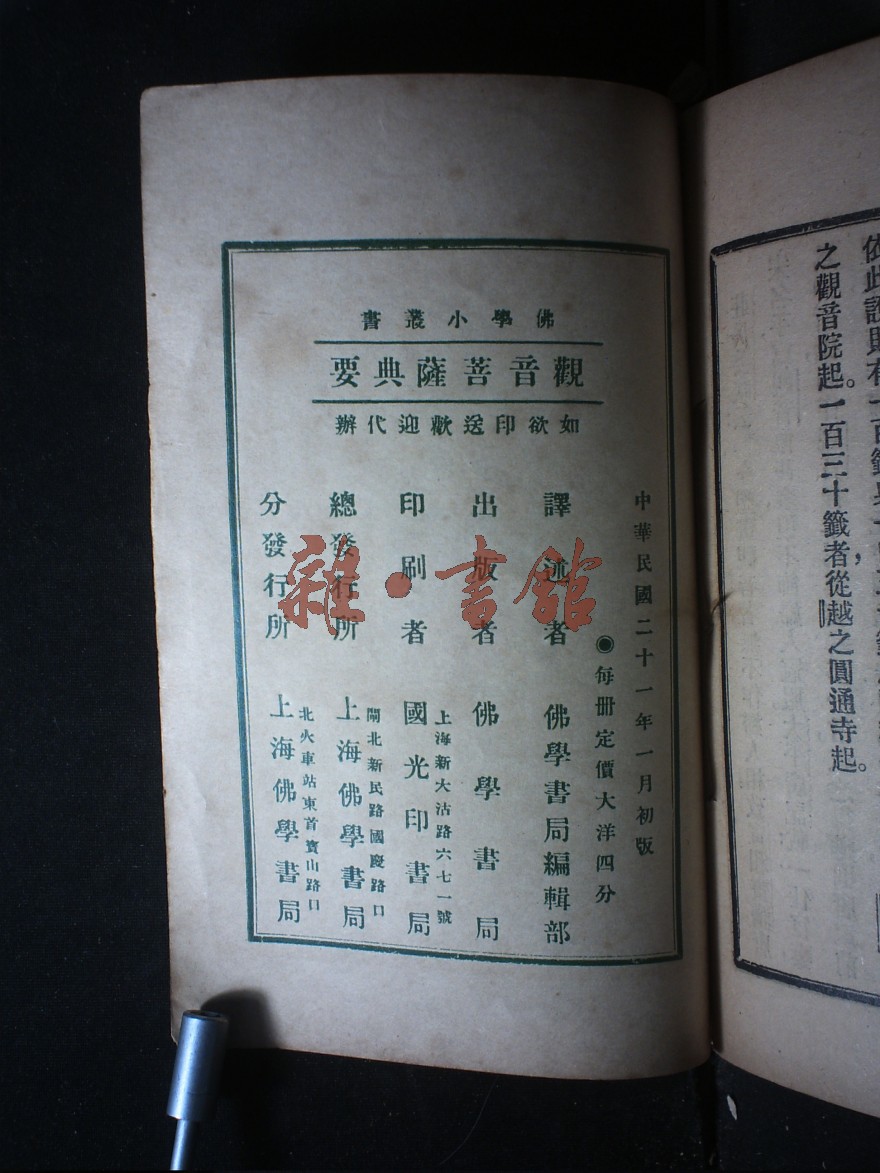 佛學小叢書
觀音菩薩典要
如欲印送歡迎代辦
中華民國二十一年一月初版
◉每册定價大洋四分
譯述者 佛學書局編輯部
出版者 佛學書局
上海新大沽路六七一號
印刷者 國光印書局
閘北新民路國慶路口
總發行所 上海佛學書局
北火車站東首寶山路口
分發行所 上海佛學書局
雜·書館
之觀音院起。一百三十籤者,從越之圓通寺起。